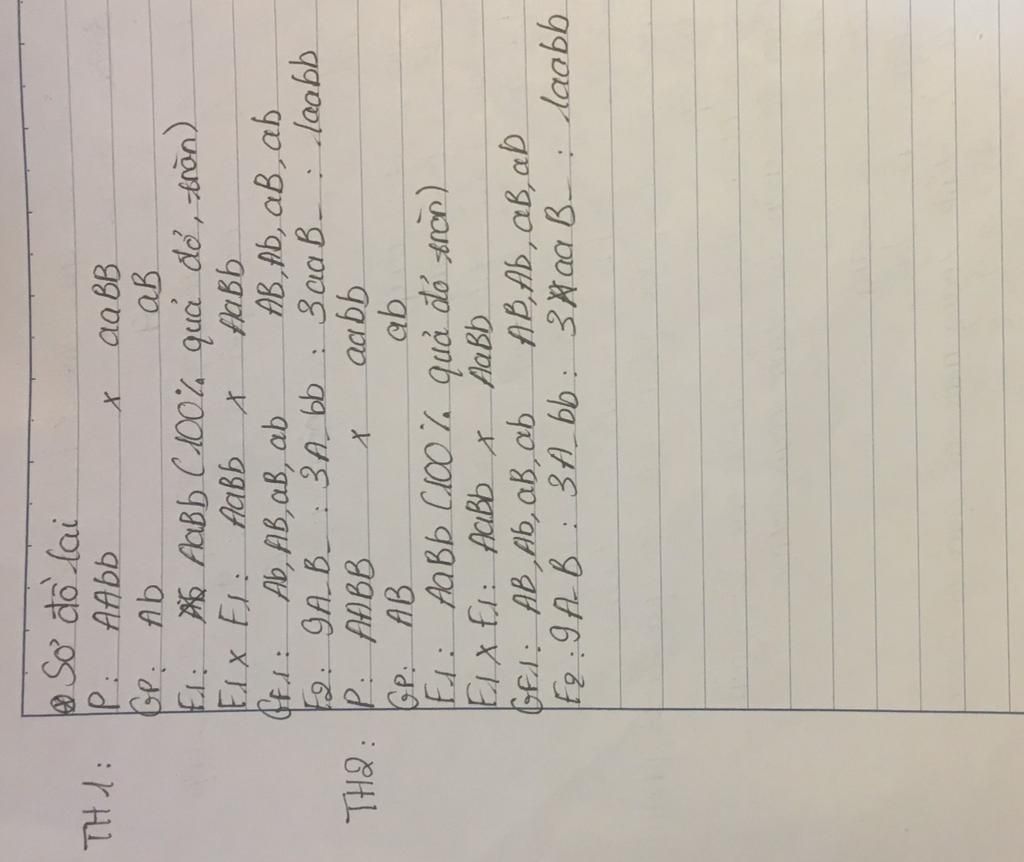 Sơ đồ lai
TH1: P: AAbb x aaBB
GP: Ab aB
F1: AaBb (100% quả đỏ, tròn)
F1 x F1: AaBb x AaBb
GF1: Ab, AB, aB, ab AB, Ab, aB, ab
F2: 9A_B_ : 3A_bb : 3aaB_ : 1aabb
TH2: P: AABB x aabb
GP: AB ab
F1: AaBb (100% quả đỏ tròn)
F1 x F1: AaBb x AaBb
GF1: AB, Ab, aB, ab AB, Ab, aB, ab
F2: 9A_B : 3A_bb : 3aaB_ : 1aabb